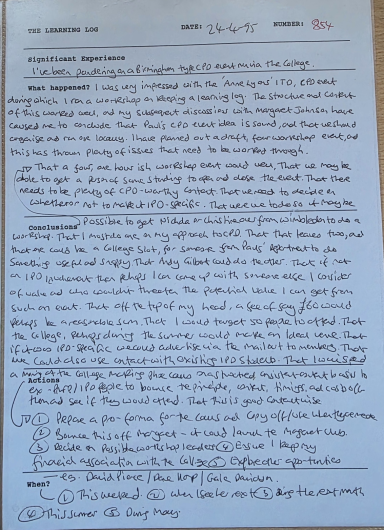 THE LEARNING LOG DATE: 24-4-95 NUMBER: 854
Significant Experience
I've been pondering a Birmingham type CPD event run via the College.
What happened? I was very impressed with the 'Anne Lyons' ITD, CPD event
during which I ran a workshop on keeping a learning log. The structure and content
of this worked well, and my subsequent discussions with Margaret Johnson, have
caused me to conclude that Paul's CPD event idea is sound, and that we should
organise and run one locally. I have planned out a draft, four workshop event, and
this has thrown plenty of issues that need to be worked through.
That a four, one hour ish workshop event would work, That we may be
able to get a person of some standing to open and close the event. That there
needs to be plenty of CPD-worthy content. That we need to decide on
whether or not to make it IPD-specific. That were we to do so it may be
Conclusions possible to get from Wimbledon to do a
workshop. That I must do one on my approach to CPD. That that leaves two, and
that one could be a College slot, for someone from Paul's department to do
something useful and snappy. That Andy Gibb could do the other. That if not
an IPD involvement then perhaps I can come up with someone else I consider
of value and who wouldn't threaten the potential value I can get from
such an event. That off the top of my head, a fee of say £60 would
perhaps be a reasonable sum. That I would target 50 people to attend. That
the College, perhaps during the summer would make an ideal venue. That
if it do IPD-specific we could advertise in the mailout to members. That
we could also use contact with existing IPD students. That I
a many at the College
ex- people to bounce the principle, content, timings, and costs off
them and see if they would attend. That this is good content wise
Actions
① Prepare a pro-forma for the event and copy off/use when there
② Bounce this off Margaret - it could launch the Margaret club.
③ Decide on possible workshop leaders ④ Ensure I keep my
financial association with the College ⑤ Explore other opportunities
e.g. David Pierce / Dave Hop / Gale Davidson.
When? ① This weekend. ② When I see her next ③ During the next month
④ This summer ⑤ During May.